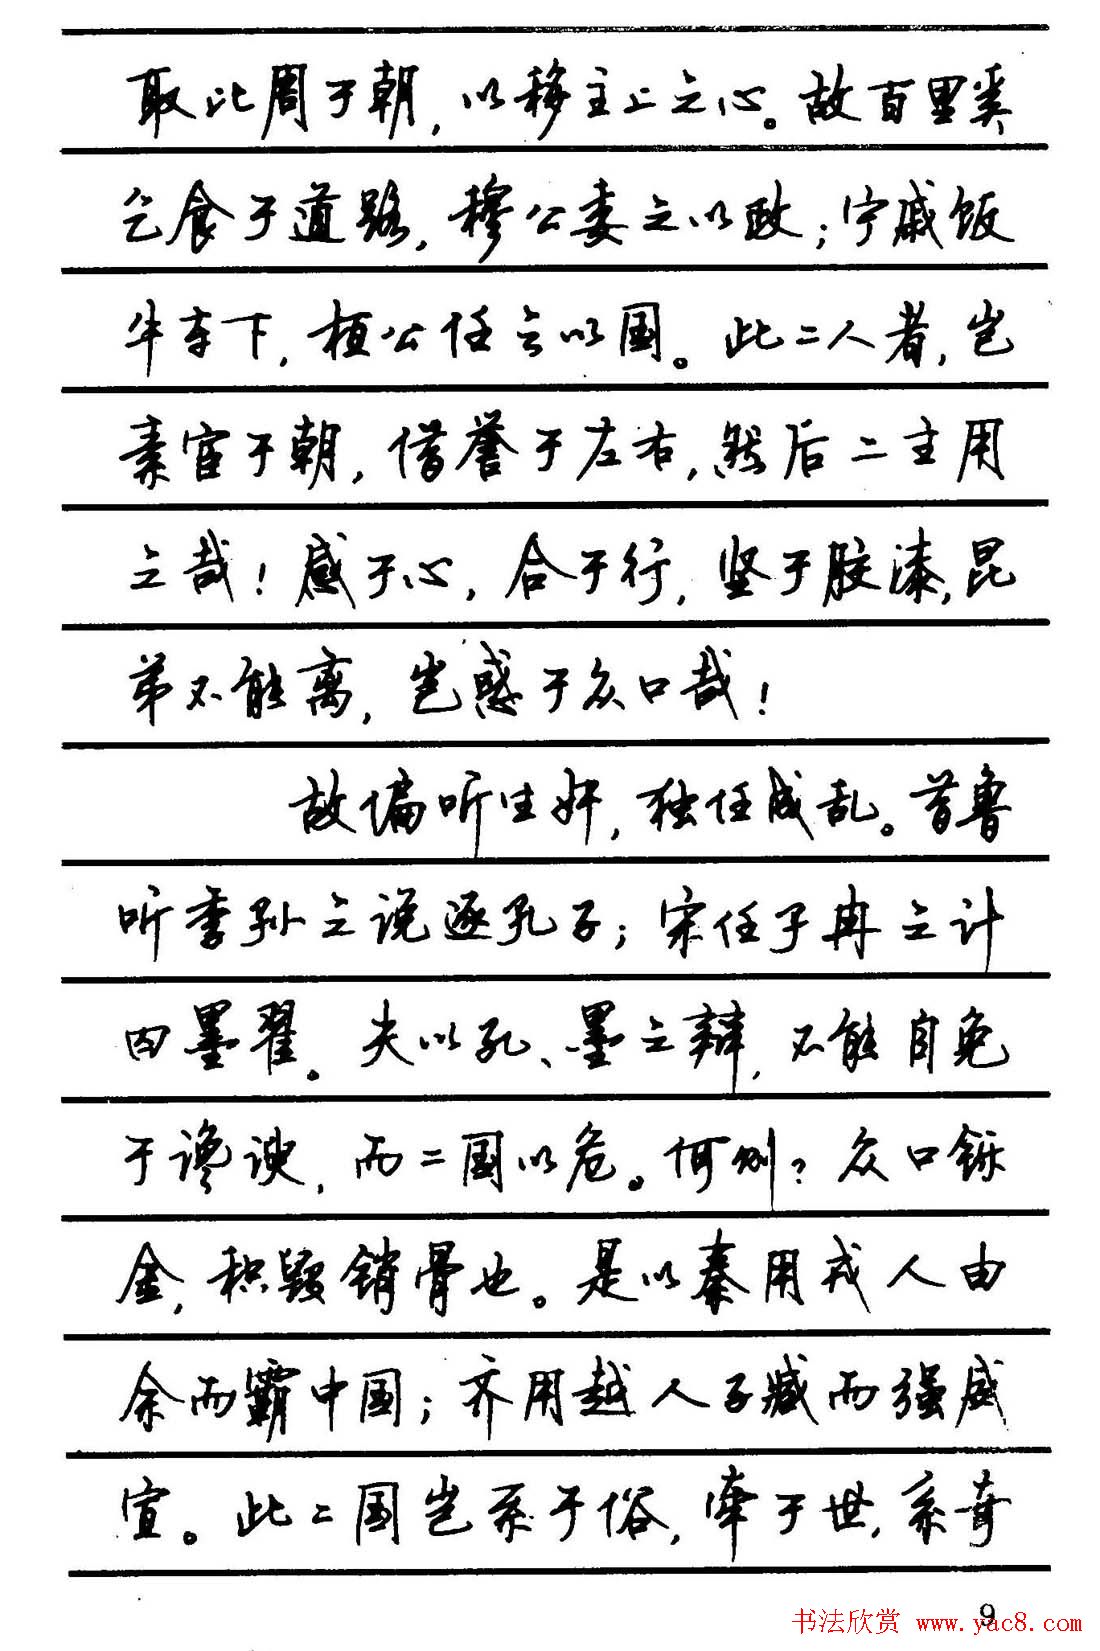 取比周于朝，以移主上之心。故百里奚
乞食于道路，穆公委之以政；宁戚饭
牛车下，桓公任之以国。此二人者，岂
素宦于朝，借誉于左右，然后二主用
之哉！感于心，合于行，坚于胶漆，昆
弟不能离，岂惑于众口哉！
故偏听生奸，独任成乱。昔鲁
听季孙之说逐孔子；宋任子冉之计
囚墨翟。夫以孔、墨之辩，不能自免
于谗谀，而二国以危。何则？众口铄
金，积毁销骨也。是以秦用戎人由
余而霸中国；齐用越人子臧而强威
宣。此二国岂系于俗，牵于世，系奇
9
书法欣赏 www.yac8.com